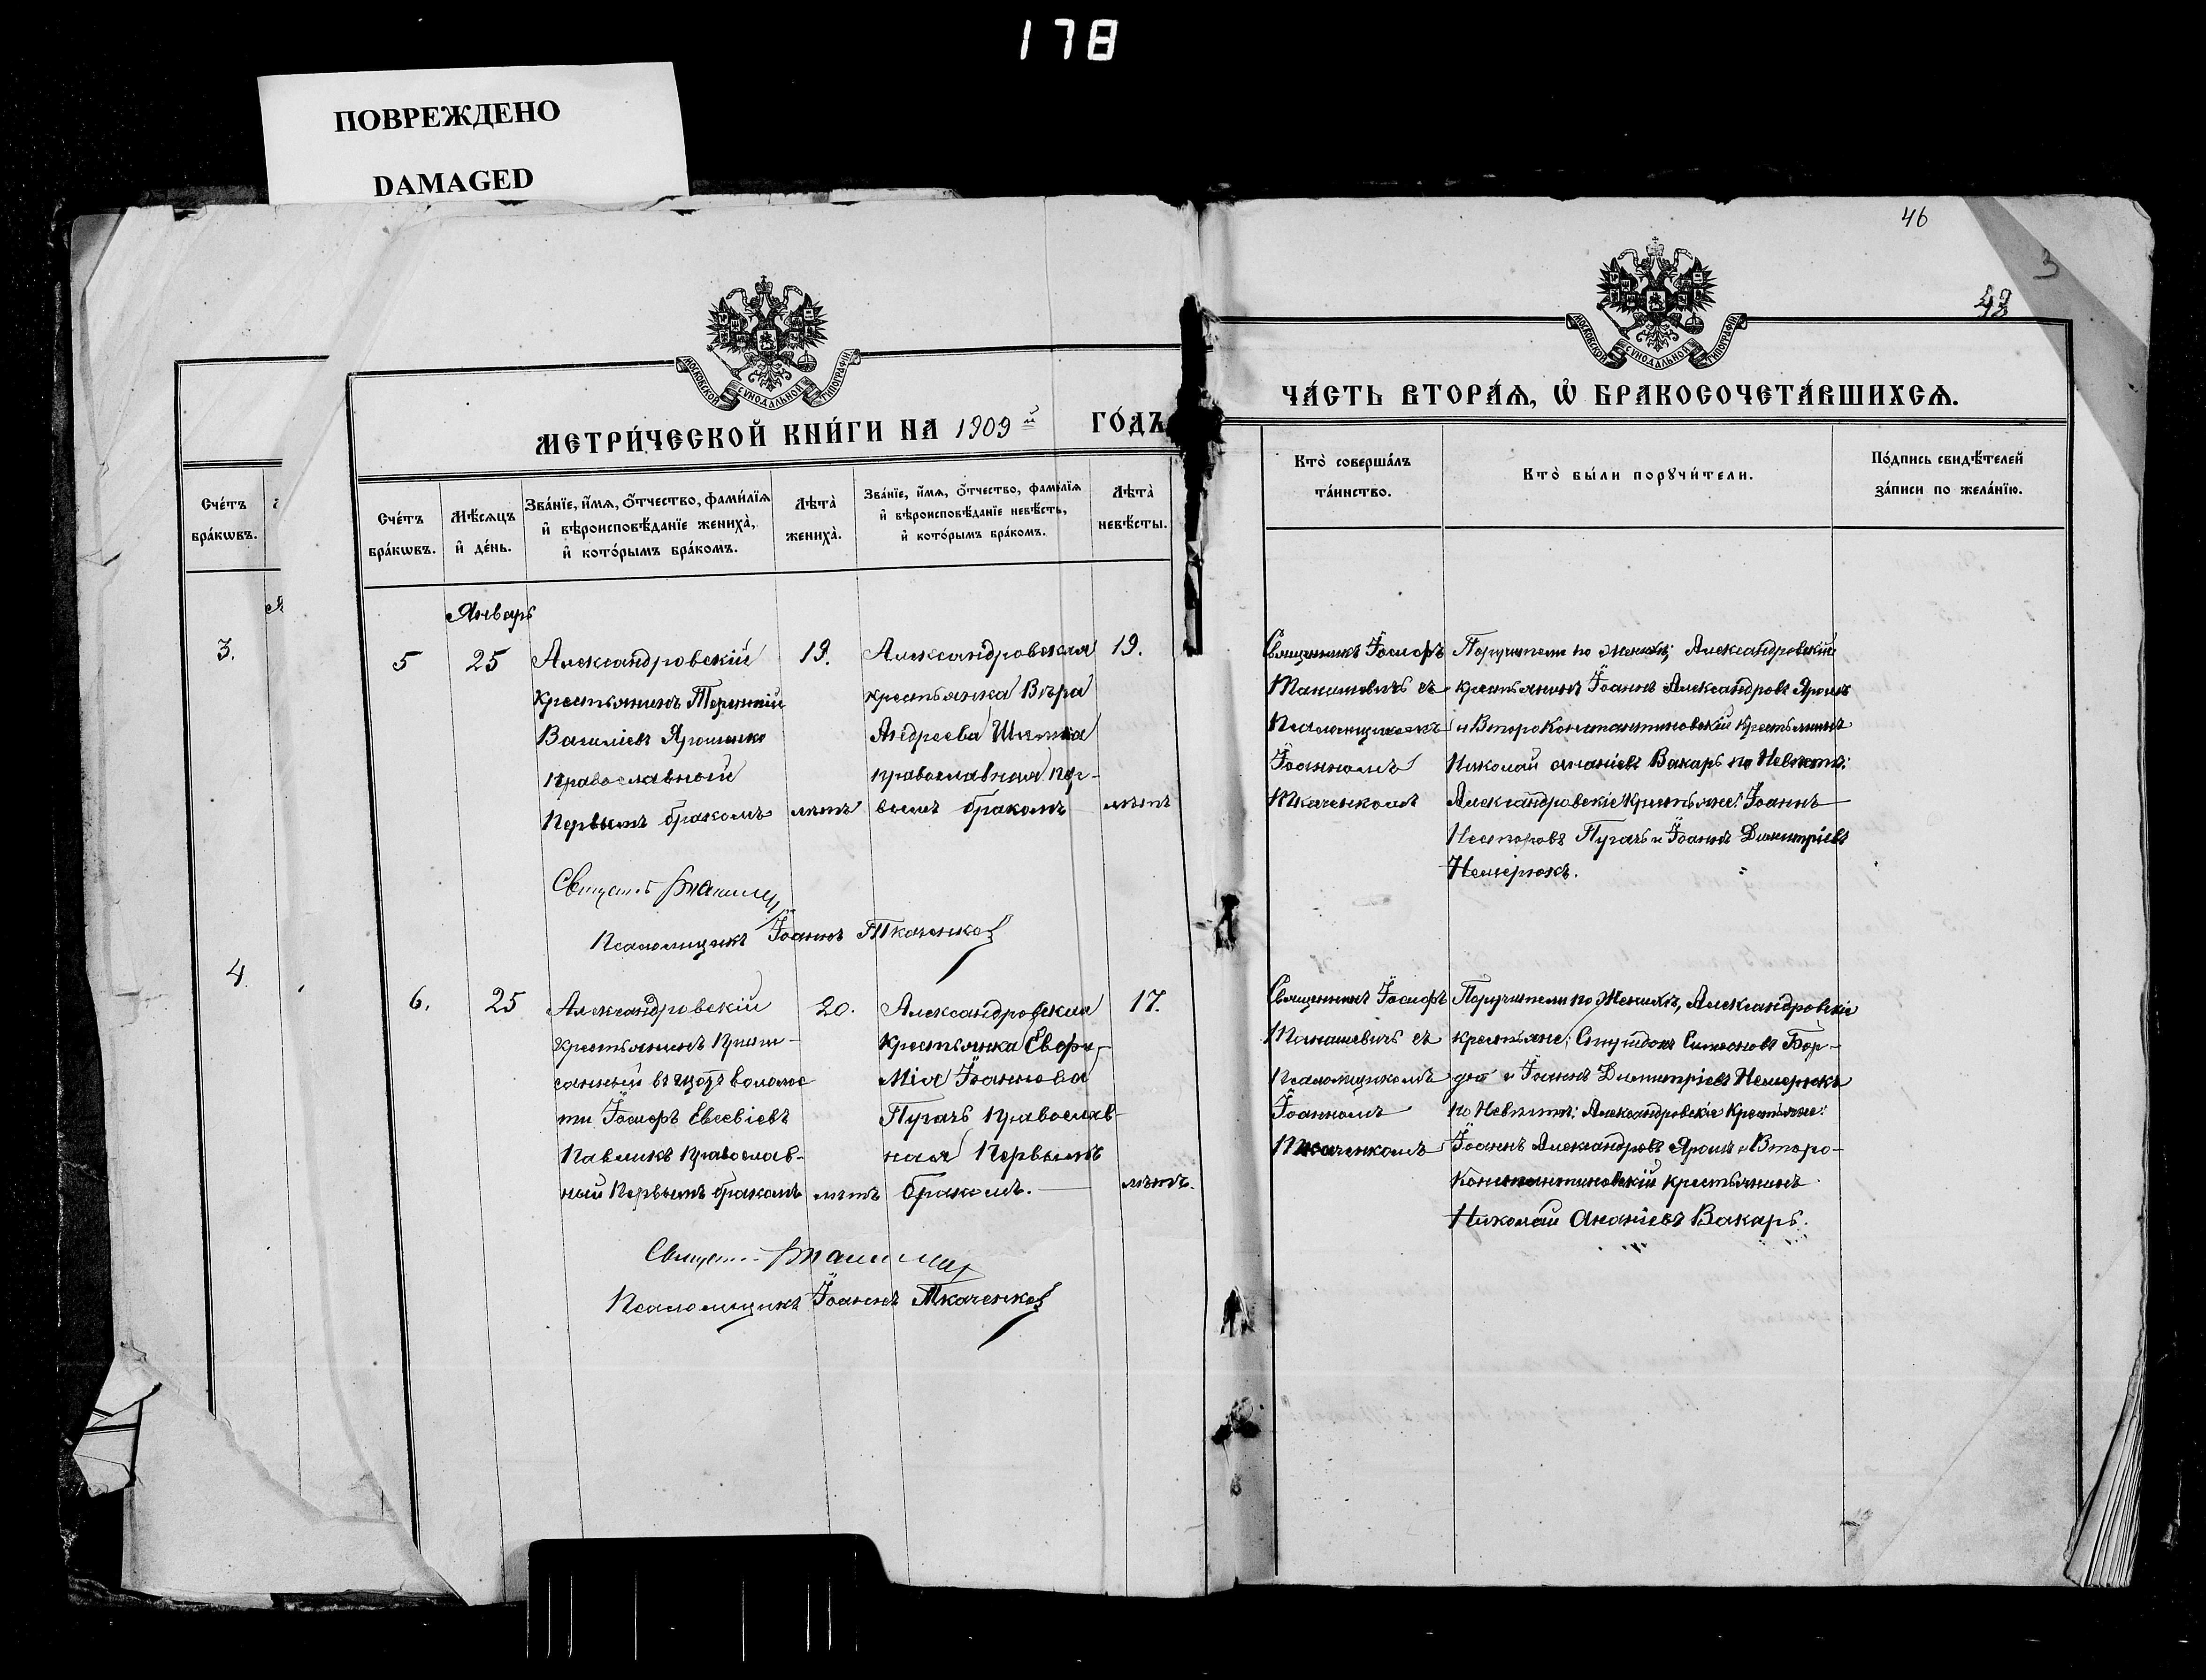 178
ПОВРЕЖДЕНО
DAMAGED
46
3
МОСКОВСКОЙ СѴНОДАЛЬНОЙ ТИПОГРАФІИ
МЕТРИ́ЧЕСКОЙ КНИ́ГИ НА 1909 й ГО́ДЪ
Сче́тъ
бра́кѡвъ.
3.
4.
Сче́тъ
бра́кѡвъ.
Мѣ́сяцъ
и҆ де́нь.
Зва́нїе, и҆́мѧ, ѻ҆́тчество, фами́лїѧ
и҆ вѣроисповѣ́данїе жениха̀,
и҆ кото́рымъ бра́комъ.
Лѣта̀
жениха̀.
Зва́нїе, и҆́мѧ, ѻ҆́тчество, фами́лїѧ
и҆ вѣроисповѣ́данїе невѣ́стъ,
и҆ кото́рымъ бра́комъ.
Лѣта̀
невѣ́сты.
Январь
5
25
Александровскій
крестьянинъ Терентій
Василіевъ Ярошенко
православный
первымъ бракомъ
19.
лѣтъ
Александровская
крестьянка Вѣра
Андреева
православная пер-
вымъ бракомъ
19.
лѣтъ
Псаломщикъ Іоаннъ Ткаченко
6.
25
Александровскій
крестьянинъ припи-
санный въ волос
ти Іосифъ Евсевіевъ
Павликъ православ-
ный первымъ бракомъ
20.
лѣтъ
Александровская
крестьянка Евфи-
мія Іоаннова
Пугачъ православ-
ная первымъ
бракомъ.
17.
лѣтъ.
Псаломщикъ Іоаннъ Ткаченко
МОСКОВСКОЙ СѴНОДАЛЬНОЙ ТИПОГРАФІИ
ЧА́СТЬ ВТОРА́Ѧ, Ѡ҆ БРАКОСОЧЕТА́ВШИХСѦ.
Кто̀ соверша́лъ
та́инство.
Кто̀ бы́ли порꙋчи́тели.
По́дпись свидѣ́телей
за́писи по жела́нїю.
Священникъ Іосифъ
Манашевичъ съ
Псаломщикомъ
Іоанномъ
Ткаченкомъ
Поручители по женихѣ; Александровскій
крестьянинъ Іоаннъ Александровъ Ярошъ
и Второ Константиновскій крестьянинъ
Николай Ананіевъ Вакарь по Невѣстѣ:
Александровскіе крестьяне: Іоаннъ
Несторовъ Пугачъ и Іоаннъ Димитріевъ
Немерюкъ.
Священникъ Іосифъ
Манашевичъ съ
Псаломщикомъ
Іоанномъ
Ткаченкомъ
Поручители по Женихѣ, Александровскіе
крестьяне; Симеоновъ Бор-
и Іоаннъ Димитріевъ Немерюкъ
по Невѣстѣ: Александровскіе Крестьяне:
Іоаннъ Александровъ Ярошъ и Второ-
Константиновскій крестьянинъ
Николай Ананіевъ Вакарь.